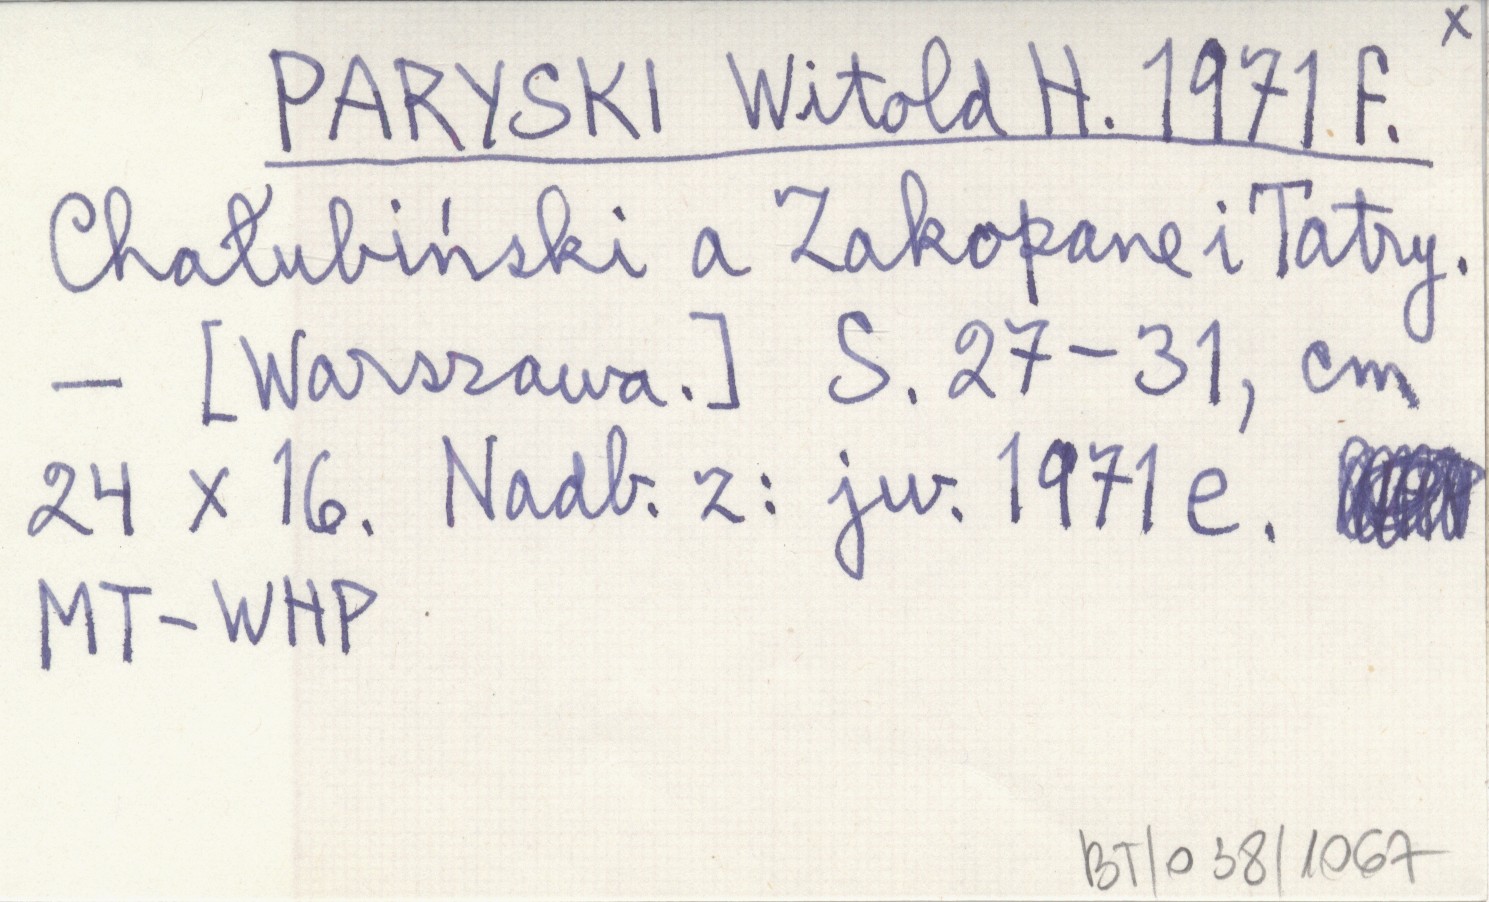 x
PARYSKI Witold H. 1971 f.
Chałubiński a Zakopane i Tatry.
— [Warszawa.] S. 27–31, cm
24 x 16. Nadb. z: jw. 1971 e.
MT–WHP
BT/038/1067